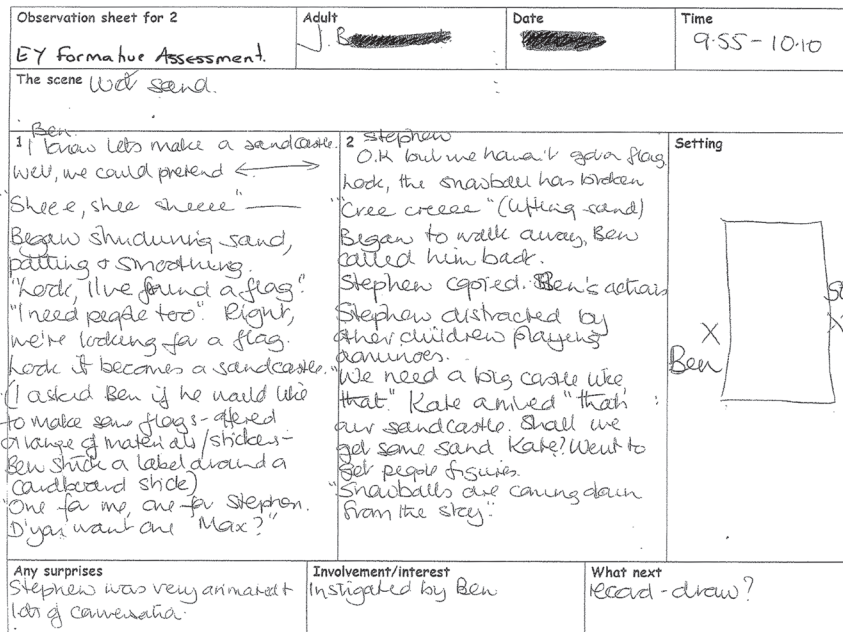 Observation sheet for 2
EY Formative Assessment.
Adult
J. B
Date
Time
9.55 - 10.10
The scene Wet sand.
1 Ben
I know lets make a sandcastle.
Well, we could pretend
"Sheee, shee sheeee"
Began shunning sand,
patting & smoothing.
"Look, I've found a flag".
"I need people too". Right,
we're looking for a flag.
Look it becomes a sandcastle.
(I asked Ben if he would like
to make some flags - offered
a range of materials/stickers -
Ben stuck a label around a
cardboard stick)
"One for me, one for Stephen.
D'you want one Max?"
2 Stephen
O.K but we haven't got a flag.
Look, the snowball has broken
"Cree creeee" (lifting sand)
Began to walk away, Ben
called him back.
Stephen copied Ben's actions
Stephen distracted by
other children playing
dominoes.
"We need a big castle like
that." Kate arrived "thats
our sandcastle. Shall we
get some sand Kate? Went to
get people figures.
"Snowballs are coming down
from the sky".
Setting
X
Ben
St
X
Any surprises
Stephen was very animated &
lots of conversation.
Involvement/interest
Instigated by Ben
What next
record - draw?